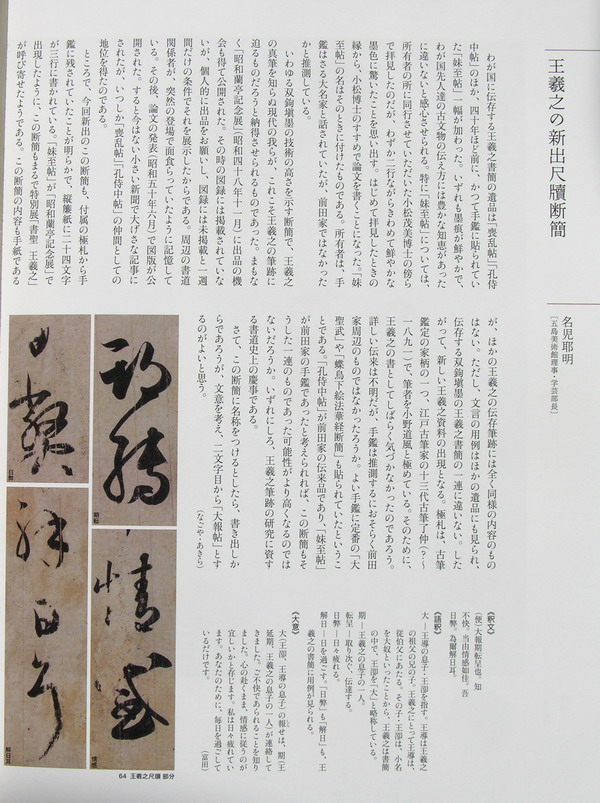 王羲之の新出尺牘断簡
名児耶明
[五島美術館理事・学芸部長]
わが国に伝存する王羲之書簡の遺品は「喪乱帖」「孔侍
中帖」のほか、四十年ほど前に、かつて手鑑に貼られてい
た「妹至帖」一幅が加わった。いずれも墨痕が鮮やかで、
わが国先人達の古文物の伝え方には豊かな知恵があった
に違いないと感心させられる。特に「妹至帖」については、
所有者の所に同行させていただいた小松茂美博士の傍ら
で拝見したのだが、わずか二行ながらきわめて鮮やかな
墨色に驚いたことを思い出す。はじめて拝見したときの
縁から、小松博士のすすめで論文を書くことになった。「妹
至帖」の名はそのときに付けたものである。所有者は、手
鑑はさる大名家と話されていたが、前田家ではなかった
かと推測している。
いわゆる双鉤塡墨の技術の高さを示す断簡で、王羲之
の真筆を知らぬ現代の我らが、これこそ王羲之の筆跡に
迫るものだろうと納得させられるものであった。まもな
く「昭和蘭亭記念展」(昭和四十八年十一月)に出品の機
会も得て公開された。その時の図録には掲載されていな
いが、個人的に出品をお願いし、図録には未掲載と一週
間だけの条件でそれを展示したからである。周辺の書道
関係者が、突然の登場で面食らっていたように記憶して
いる。その後、論文の発表(昭和五十年六月)で図版が公
開された。すると今はない小さい新聞で大げさな記事に
されたが、いつしか「喪乱帖」「孔侍中帖」の仲間としての
地位を得たのである。
ところで、今回新出のこの断簡も、付属の極札から手
鑑に残されていたことが明らかで、縦簾紙に二十四文字
が三行に書かれている。「妹至帖」が「昭和蘭亭記念展」で
出現したように、この断簡もまるで特別展「書聖 王羲之」
が呼び寄せたようである。この断簡の内容も手紙である
が、ほかの王羲之の伝存筆跡には全く同様の内容のもの
はない。ただし、文言の用例はほかの遺品にも見られ、
伝存する双鉤塡墨の王羲之書簡の一連に違いない。した
がって、新しい王羲之資料の出現となる。極札は、古筆
鑑定の家柄の一つ、江戸古筆家の十三代古筆了仲(?〜
一八九一)で、筆者を小野道風と極めている。そのために、
王羲之の書としてしばらく気づかなかったのであろう。
詳しい伝来は不明だが、手鑑は推測するにおそらく前田
家周辺のものではなかったろうか。よい手鑑に定番の「大
聖武」や「蝶鳥下絵法華経断簡」も貼られていたというこ
とである。「孔侍中帖」が前田家の伝来品であり、「妹至帖」
が前田家の手鑑であったと考えられれば、この断簡もそ
うした一連のものであった可能性がより高くなるのでは
ないだろうか。いずれにしろ、王羲之筆跡の研究に資す
る書道史上の慶事である。
さて、この断簡に名称をつけるとしたら、書き出しか
らであろうが、文意を考え、二文字目から「大報帖」とす
るのがよいと思う。
(なごや・あきら)
《釈文》
(便)大報期転呈也。知
不快。当由情感如佳。吾
日弊。為爾解日耳。
《語釈》
大―王導の息子・王劭を指す。王導は王羲之
の祖父の兄の子。王羲之にとって王導は、
従伯父にあたる。その子・王劭は、小名
を大奴といったことから、王羲之は書簡
の中で、王劭を「大」と略称している。
期―王羲之の息子の一人。
転呈―取り次ぐ、伝達する。
日弊―日々疲れる。
解日―日を過ごす。「日弊」も「解日」も、王
羲之の書簡に用例が見られる。
《大意》
大(王劭、王導の息子)の報せは、期(王
延期、王羲之の息子の一人)が連絡して
きました。ご不快であられることを知り
ました。心の赴くまま、情感に従うのが
宜しいかと存じます。私は日々疲れてい
ます。あなたのために、毎日を過ごして
いるだけです。
(富田)
期転
日弊
情感
解日耳
64 王羲之尺牘 部分